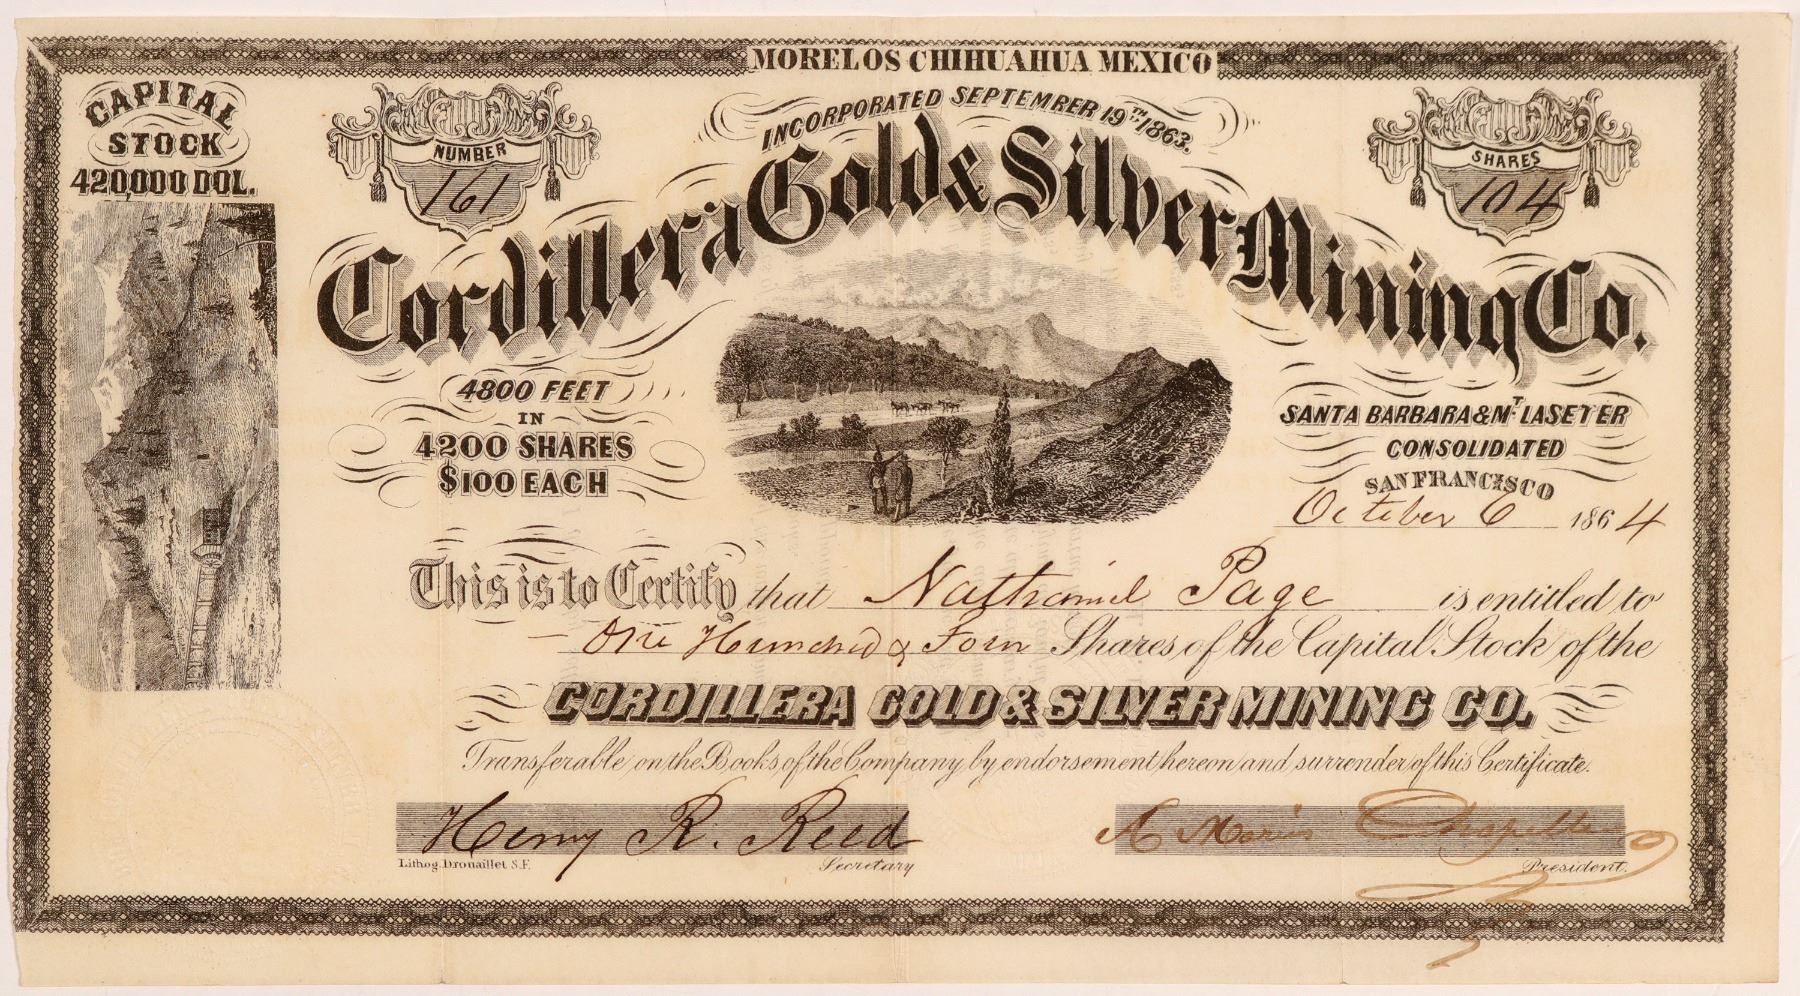 MORELOS CHIHUAHUA MEXICO
INCORPORATED SEPTEMBER 19TH 1863.
CAPITAL
STOCK
420,000 DOL.
NUMBER
161
SHARES
104
Cordillera Gold & Silver Mining Co.
4800 FEET
IN
4200 SHARES
$100 EACH
SANTA BARBARA & MT LASETER
CONSOLIDATED
SAN FRANCISCO
October 6 1864
This is to Certify that Nathaniel Page is entitled to
One Hundred & Four Shares of the Capital Stock of the
CORDILLERA GOLD & SILVER MINING CO.
Transferable on the Books of the Company by endorsement hereon and surrender of this Certificate.
Henry R. Reed
Lithog. Drouaillet S.F.
Secretary
President.